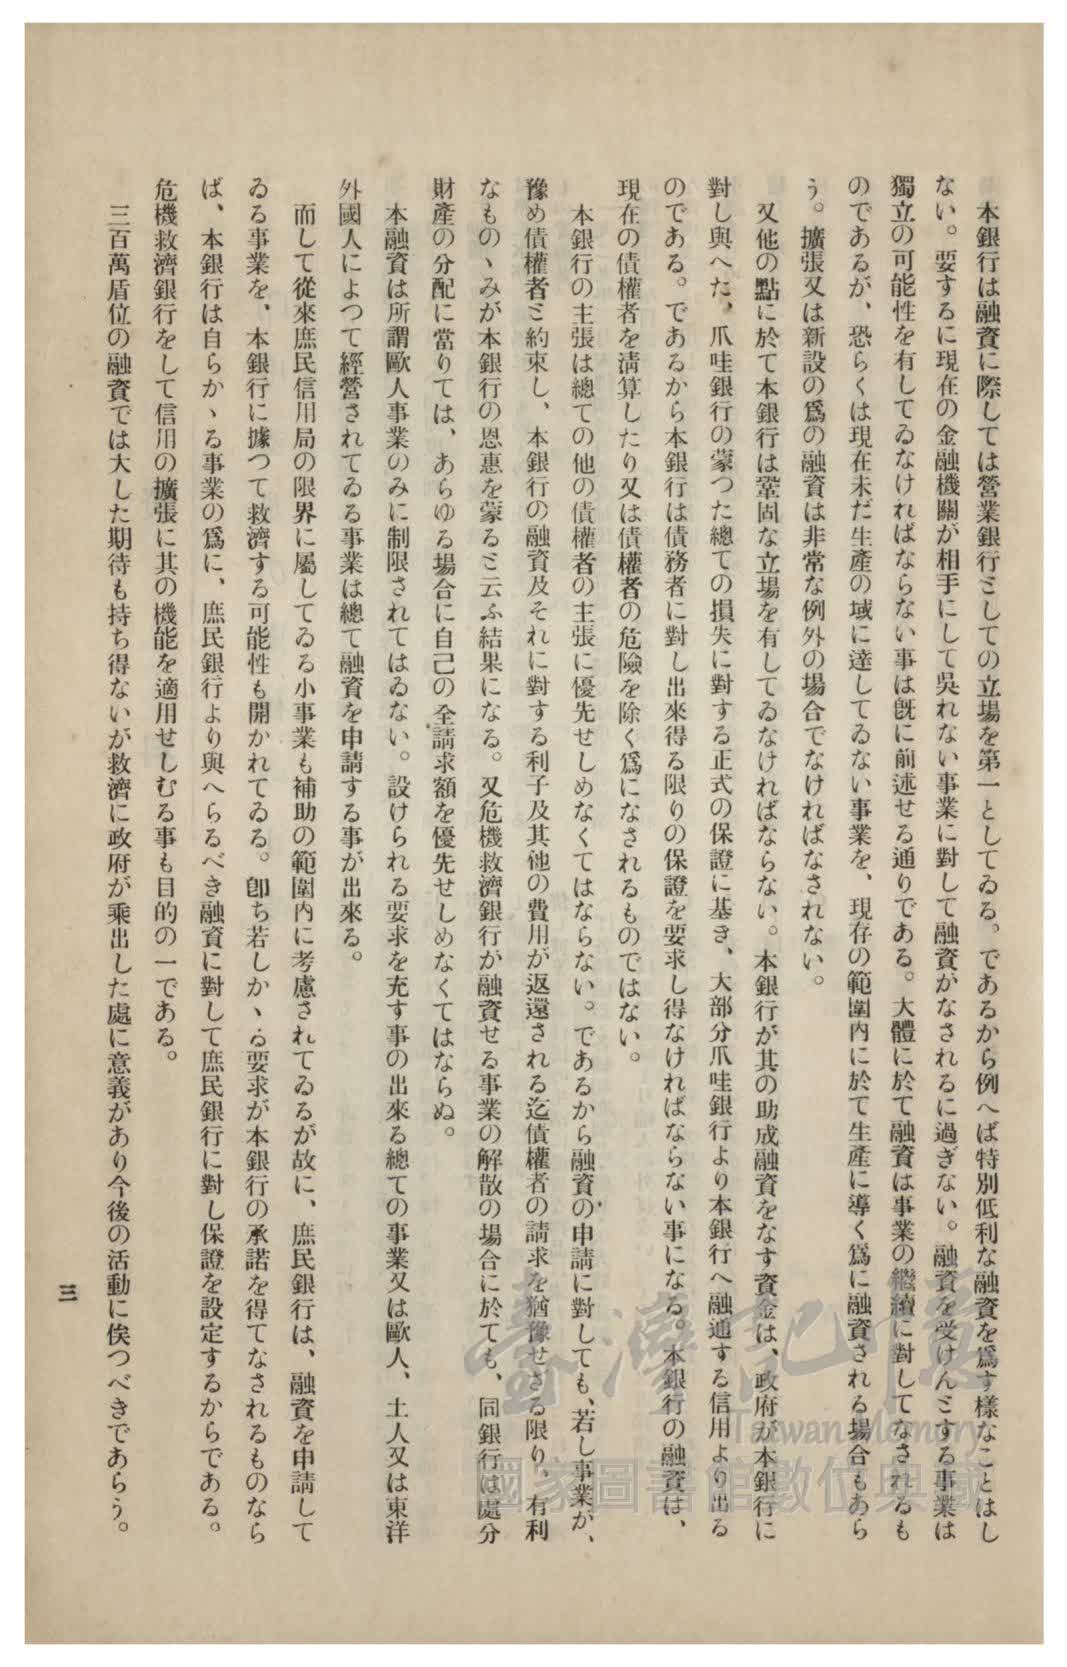 本銀行は融資に際しては營業銀行ミしての立場を第一としてゐる。であるから例へば特別低利な融資を爲す様なことはし
ない。要するに現在の金融機關が相手にして吳れない事業に對して融資がなされるに過ぎない。融資を受けんミする事業は
獨立の可能性を有してゐなければならない事は旣に前述せる通りである。大體に於て融資は事業の繼續に對してなされるも
のであるが、恐らくは現在未だ生產の域に達してゐない事業を、現存の範圍内に於て生產に導く爲に融資される場合もあら
う。擴張又は新設の爲の融資は非常な例外の場合でなければなされない。
又他の點に於て本銀行は鞏固な立場を有してゐなければならない。本銀行が其の助成融資をなす資金は、政府が本銀行に
對し與へた、爪哇銀行の蒙つた總ての損失に對する正式の保證に基き、大部分爪哇銀行より本銀行へ融通する信用より出る
のである。であるから本銀行は債務者に對し出來得る限りの保證を要求し得なければならない事になる。本銀行の融資は、
現在の債權者を淸算したり又は債權者の危險を除く爲になされるものではない。
本銀行の主張は總ての他の債權者の主張に優先せしめなくてはならない。であるから融資の申請に對しても、若し事業が、
豫め債權者ミ約束し、本銀行の融資及それに對する利子及其他の費用が返還される迄債權者の請求を猶豫せざる限り、有利
なものヽみが本銀行の恩惠を蒙るミ云ふ結果になる。又危機救濟銀行が融資せる事業の解散の場合に於ても、同銀行は處分
財產の分配に當りては、あらゆる場合に自己の全請求額を優先せしめなくてはならぬ。
本融資は所謂歐人事業のみに制限されてはゐない。設けられる要求を充す事の出來る總ての事業又は歐人、土人又は東洋
外國人によつて經營されてゐる事業は總て融資を申請する事が出來る。
而して從來庶民信用局の限界に屬してゐる小事業も補助の範圍内に考慮されてゐるが故に、庶民銀行は、融資を申請して
ゐる事業を、本銀行に據つて救濟する可能性も開かれてゐる。卽ち若しかヽる要求が本銀行の承諾を得てなされるものなら
ば、本銀行は自らかヽる事業の爲に、庶民銀行より與へらるべき融資に對して庶民銀行に對し保證を設定するからである。
危機救濟銀行をして信用の擴張に其の機能を適用せしむる事も目的の一である。
三百萬盾位の融資では大した期待も持ち得ないが救濟に政府が乘出した處に意義があり今後の活動に俟つべきであらう。
三
臺灣記憶
Taiwan Memory
國家圖書館數位典藏